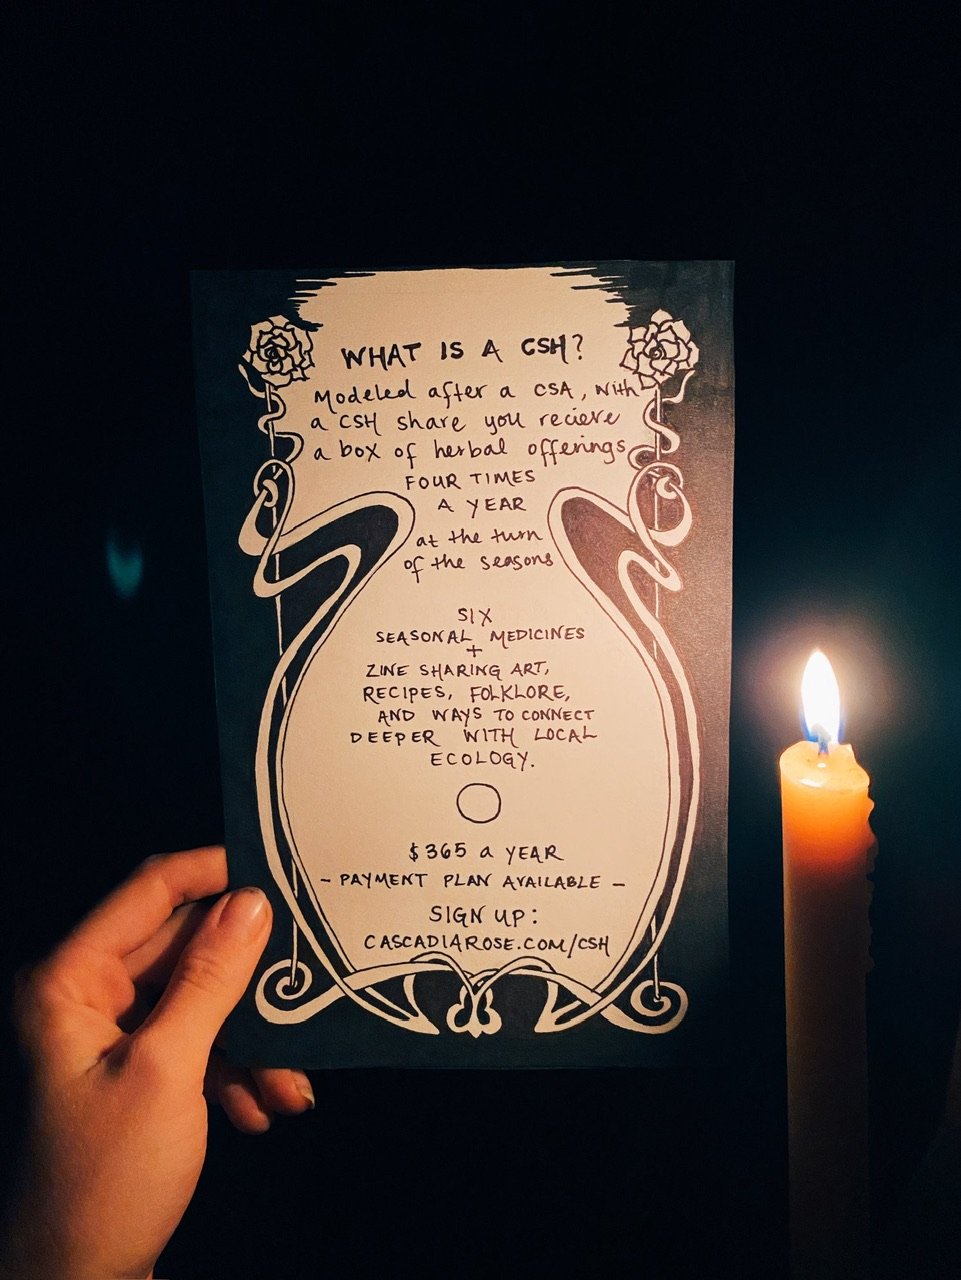 WHAT IS A CSH?
Modeled after a CSA, with
a CSH share you recieve
a box of herbal offerings
FOUR TIMES
A YEAR
at the turn
of the seasons
SIX
SEASONAL MEDICINES
+
ZINE SHARING ART,
RECIPES, FOLKLORE,
AND WAYS TO CONNECT
DEEPER WITH LOCAL
ECOLOGY.
$365 a YEAR
- PAYMENT PLAN AVAILABLE -
SIGN UP:
CASCADIAROSE.COM/CSH